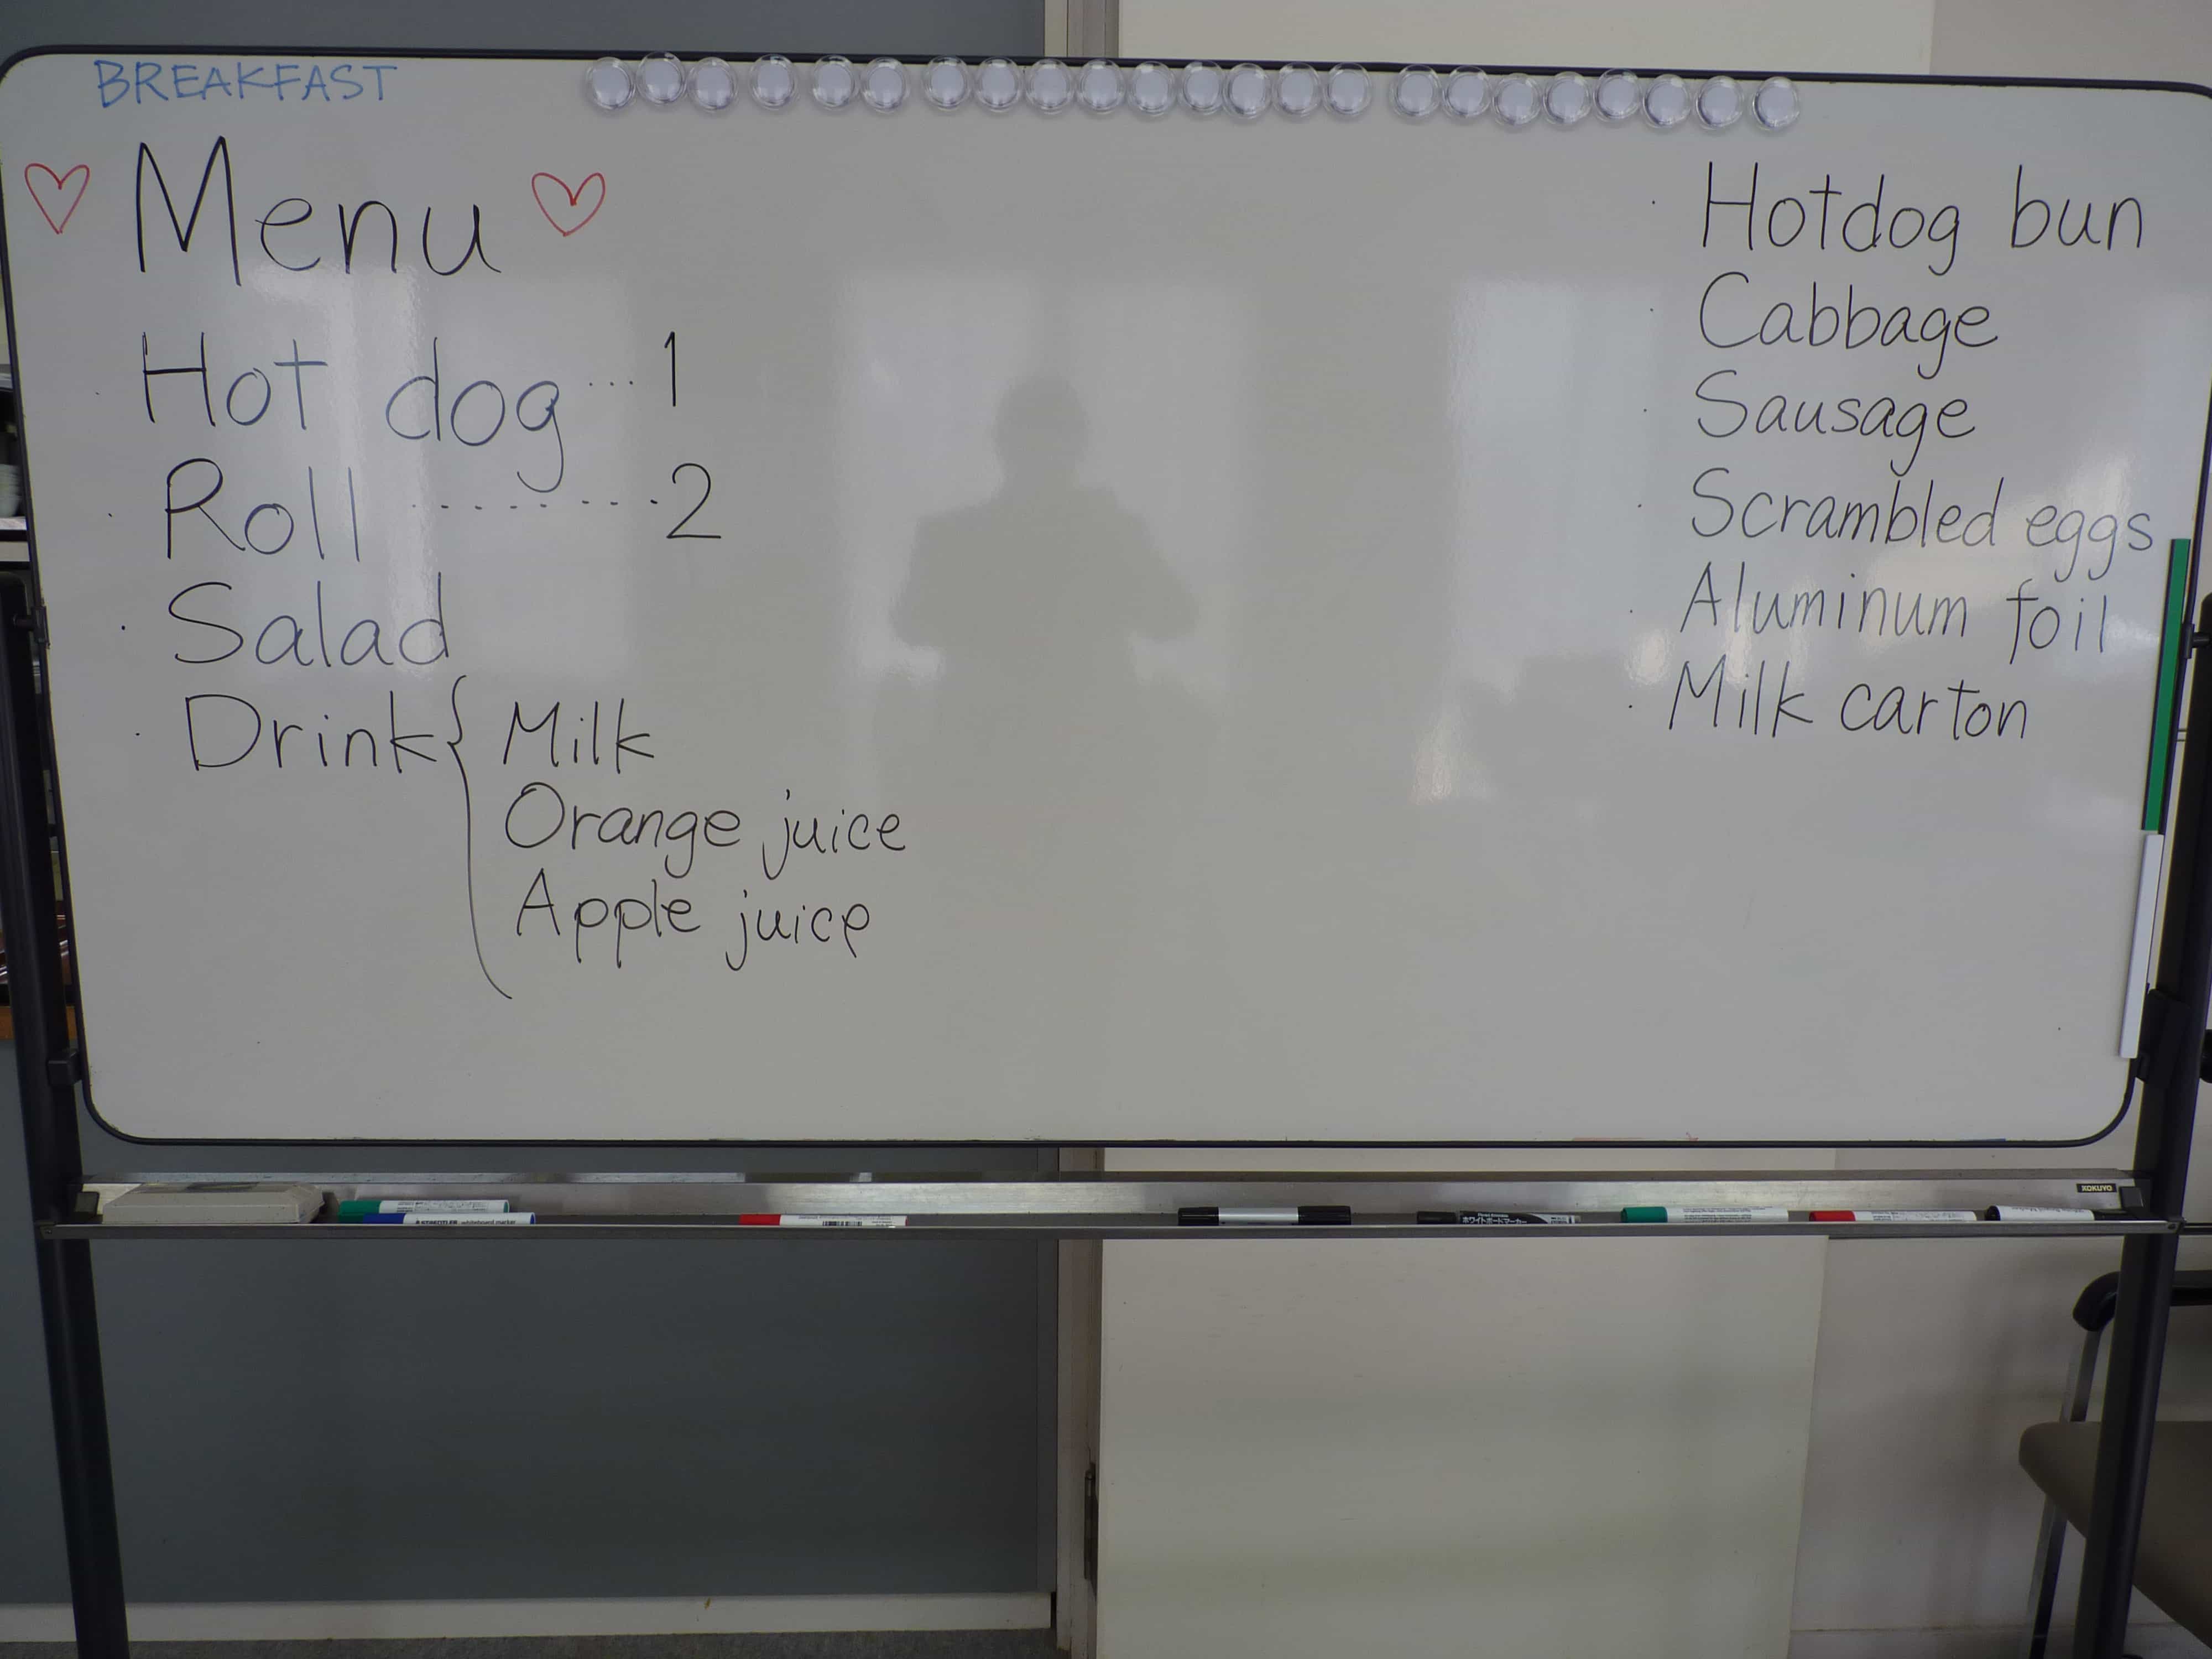 BREAKFAST
♡ Menu ♡
· Hot dog ... 1
· Roll -------- 2
· Salad
· Drink { Milk
Orange juice
Apple juice
· Hotdog bun
· Cabbage
· Sausage
· Scrambled eggs
· Aluminum foil
· Milk carton
KOKUYO
STAEDTLER whiteboard marker
ホワイトボードマーカー